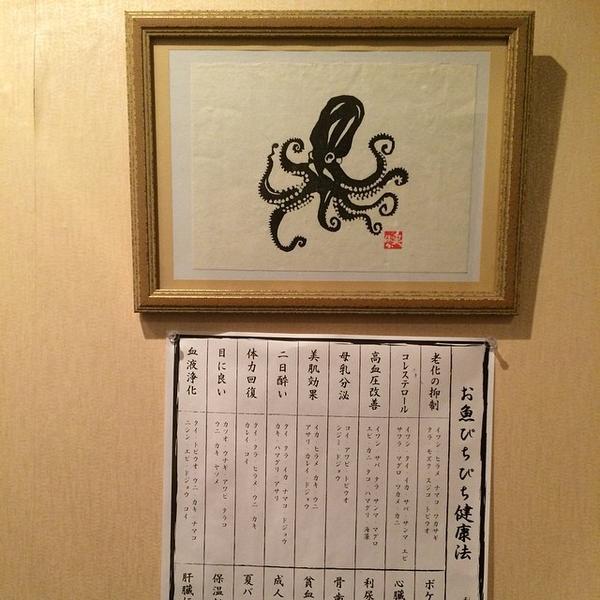 お魚ぴちぴち健康法
老化の抑制
イワシ ヒラメ ナマコ ワカサギ
タラ モズク スジコ トビウオ
コレステロール
イワシ タイ イカ サバ サンマ エビ
サワラ マグロ ワカメ カニ
高血圧改善
イワシ サバ タラ サンマ マグロ
エビ カニ タコ ハマグリ 海藻
母乳分泌
コイ アワビ トビウオ
シジミ ドジョウ
美肌効果
イカ ヒラメ カキ ウニ
アサリ カレイ ドジョウ
二日酔い
タイ タラ イカ ナマコ ドジョウ
カキ ハマグリ アサリ
体力回復
タイ タラ ヒラメ ウニ カキ
カレイ コイ
目に良い
カツオ ウナギ アワビ タラコ
ウニ カキ ヤツメ
血液浄化
タイ トビウオ ウニ カキ ナマコ
ニシン エビ ドジョウ コイ
ボケ
心臓
利尿
骨・歯
貧血
成人
夏バ
保温
肝臓